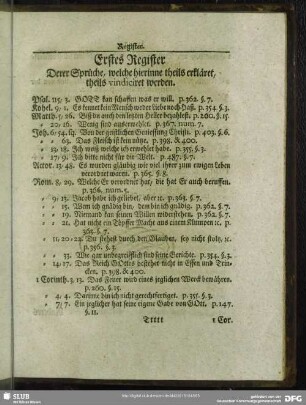 Register.
Erstes Register
Derer Sprüche, welche hierinne theils erkläret,
theils vindiciret werden.
Psal. 115, 3. GOTT kan schaffen was er will. p. 362. §. 7.
Kohel. 9, 1. Es kennet kein Mensch weder Liebe noch Haß. p. 354. §. 3.
Matth. 5, 26. Biß du auch den letzten Heller bezahlest. p. 260. §. 15.
20, 16. Wenig sind auserwehlet. p. 367. num. 7.
Joh. 6, 54. Von der geistlichen Geniessung Christi. p. 403. §. 6.
63. Das Fleisch ist kein nütze. p. 398. & 400.
13, 18. Ich weiß welche ich erwehlet habe. p. 355. §. 3.
17, 9. Ich bitte nicht für die Welt. p. 487. §. 7.
Actor. 13, 48. Es wurden gläubig wie viel ihrer zum ewigen Leben
verordnet waren. p. 365. §. 8.
Rom. 8, 29. Welche Er verordnet hat, die hat Er auch beruffen.
p. 366. num. 5.
9, 13. Jacob habe ich geliebet, aber rc. p. 363. §. 7.
15. Wem ich gnädig bin, dem bin ich gnädig. p. 362. §. 7.
19. Niemand kan seinen Willen widerstehen. p. 362. §. 7.
21. Hat nicht ein Töpffer Macht aus einem Klumpen rc. p.
363. §. 7.
11, 20. 22. Du stehest durch den Glauben, sey nicht stoltz, rc.
p. 356. §. 3.
33. Wie gar unbegreifflich sind seine Gerichte. p. 354. §. 3.
14, 17. Das Reich GOttes bestehet nicht in Essen und Trin-
cken. p. 398. & 400.
1 Corinth. 3, 13. Das Feuer wird eines jeglichen Werck bewähren.
p. 260. §. 15.
4, 4. Darinne bin ich nicht gerechtfertiget. p. 351. §. 3.
7, 7. Ein jeglicher hat seine eigene Gabe von GOtt. p. 147.
§. 11.
Tttt
1 Cor.
SLUB
DFG